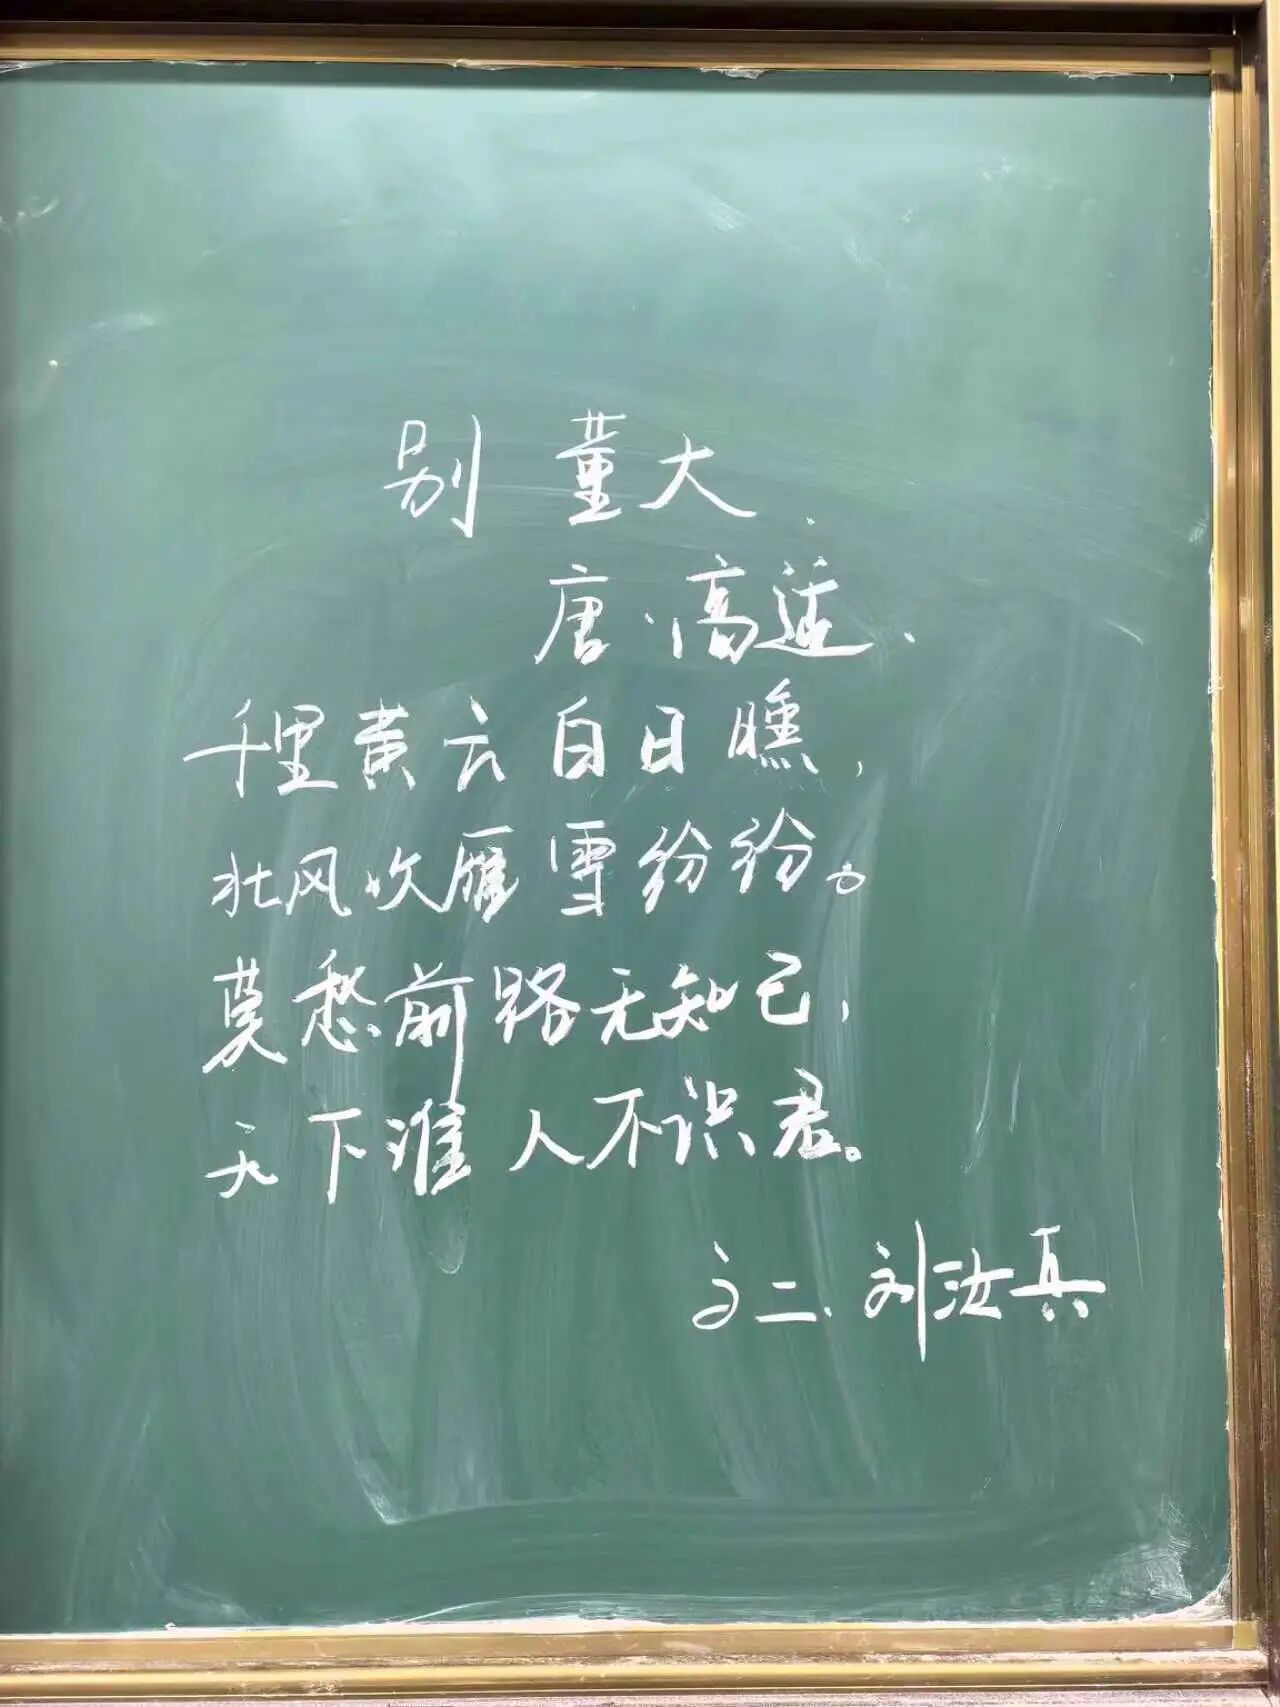 别董大
唐·高适
千里黄云白日瞧,
北风吹雁雪纷纷。
莫愁前路无知己,
天下淮人不识君。
文二、刘汝真